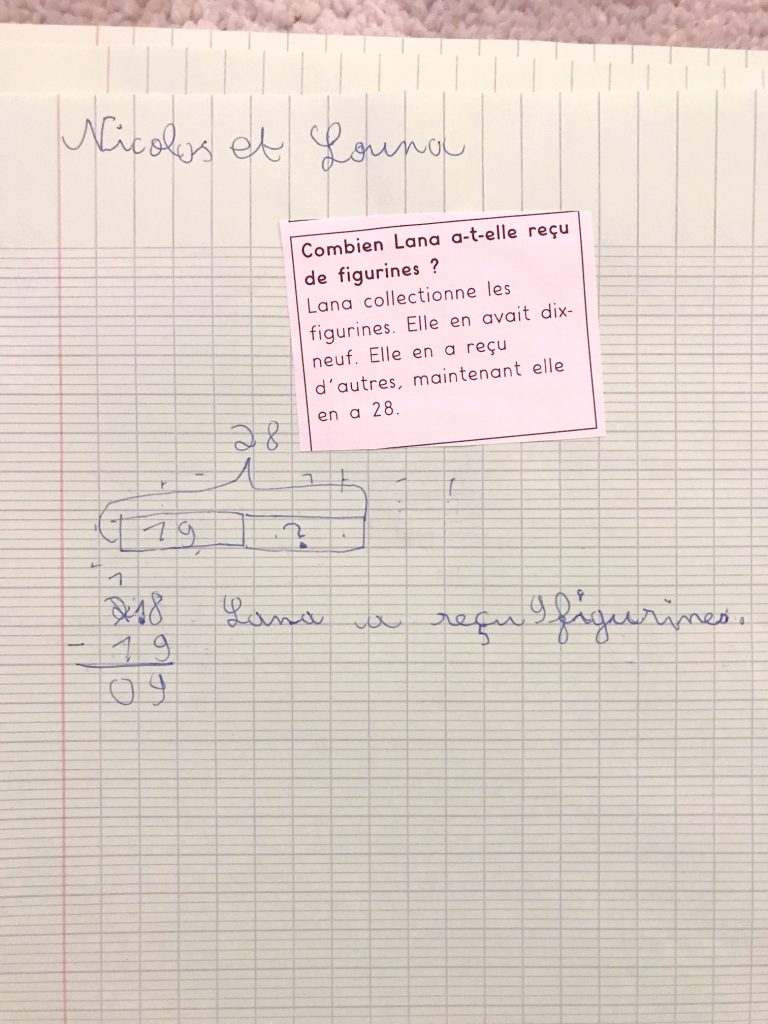 Nicolas et Louna
Combien Lana a-t-elle reçu
de figurines ?
Lana collectionne les
figurines. Elle en avait dix-
neuf. Elle en a reçu
d'autres, maintenant elle
en a 28.
28
19 ?
1
218 Lana a reçu 9 figurines.
- 19
09